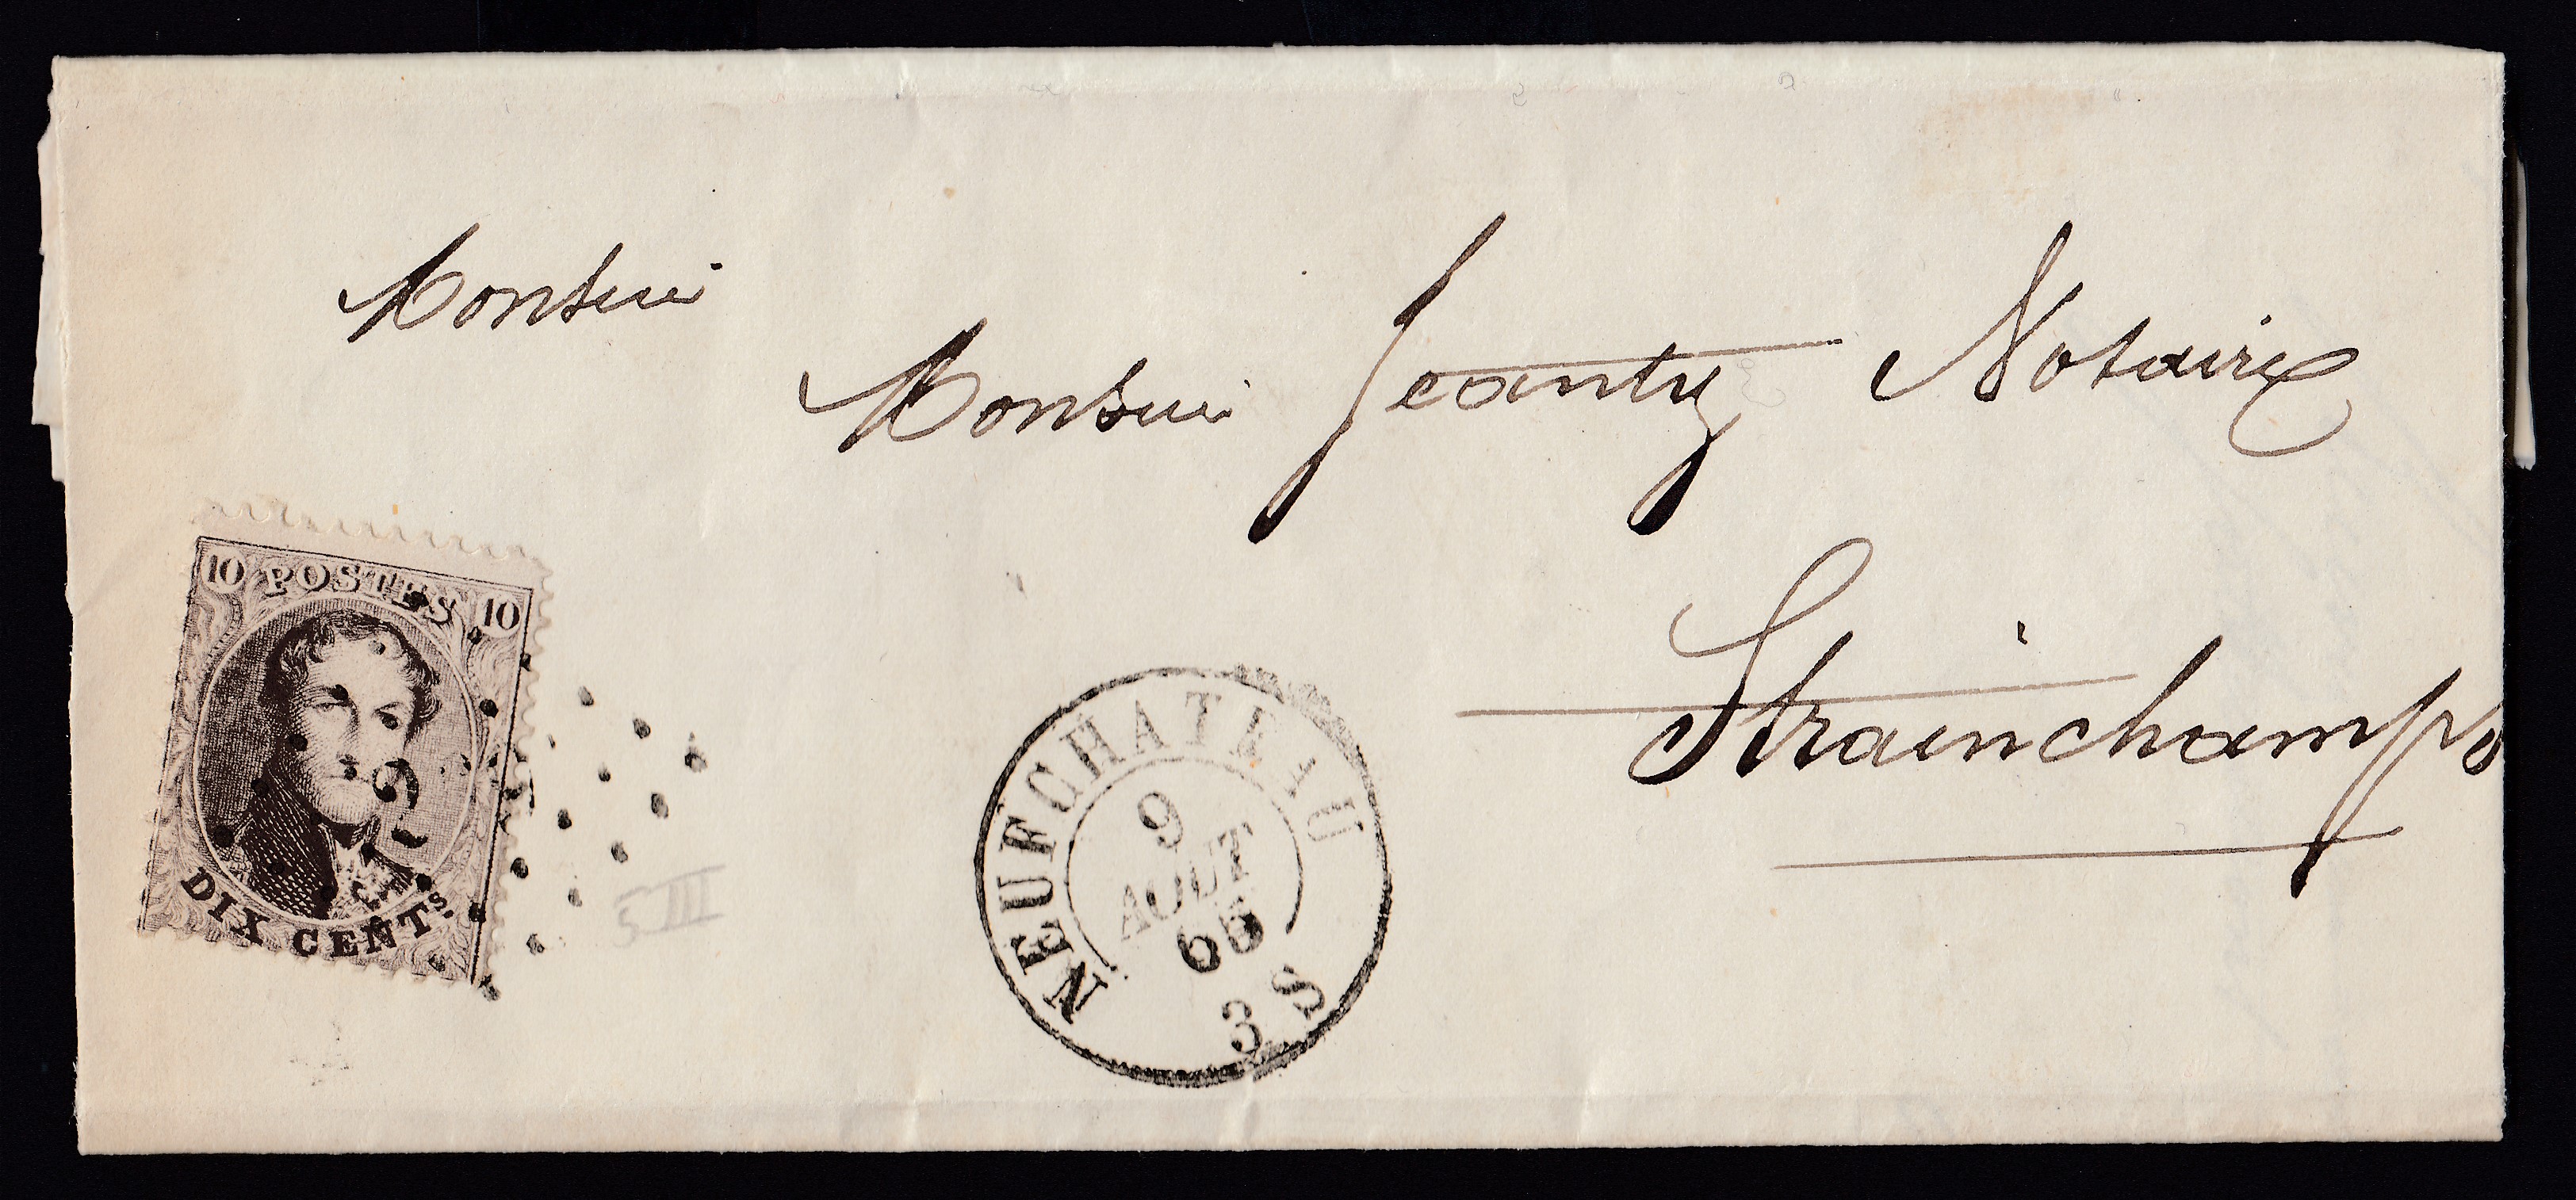 Monsieur
Monsieur Jeanty Notaire
Strainchamps
10 POSTES 10
DIX CENTS.
NEUFCHATEAU
9
AOUT
65
3 S
5 III